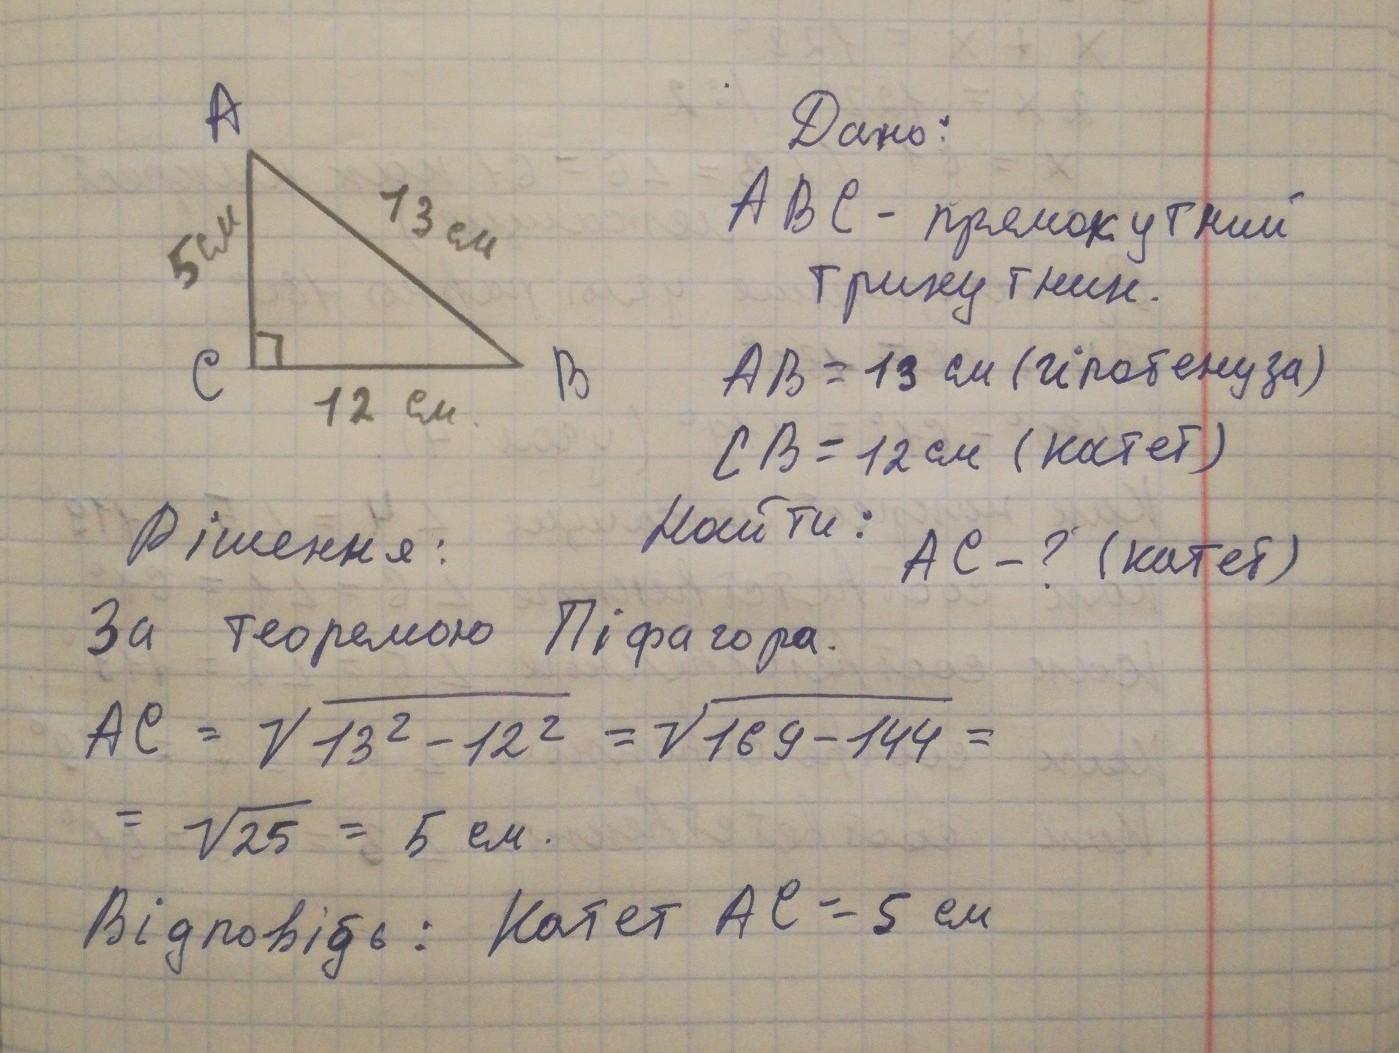 A
5см
13 см
C
B
12 см.
Дано:
ABC - прямокутний
трикутник.
AB = 13 см (гіпотенуза)
CB = 12 см (катет)
Найти:
AC - ? (катет)
Рішення:
За теоремою Піфагора.
AC = √13² - 12² = √169 - 144 =
= √25 = 5 см.
Відповідь: Катет AC = 5 см